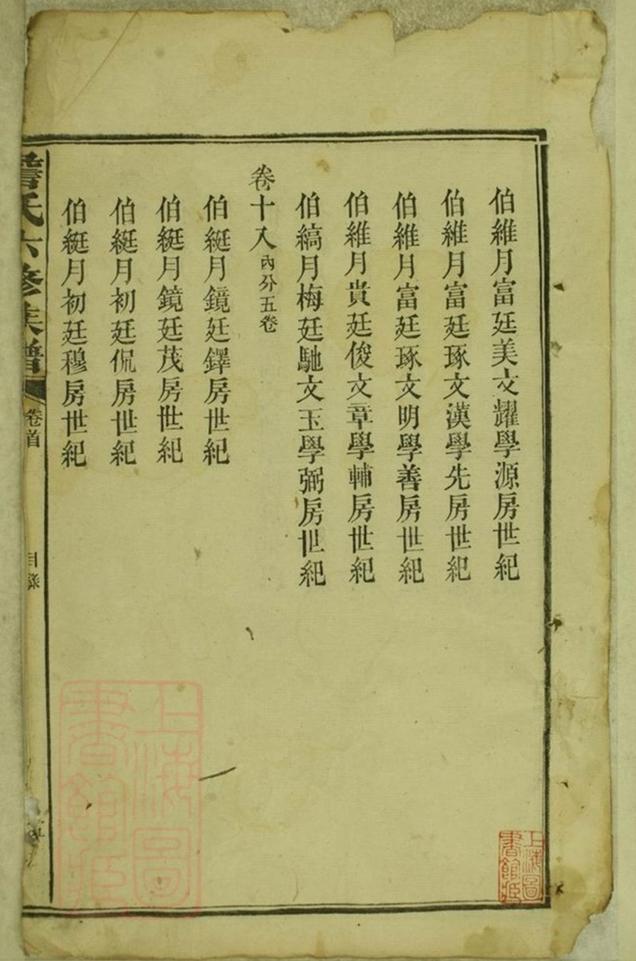 伯維月富廷美文耀學源房世紀
伯維月富廷琢文漢學先房世紀
伯維月富廷琢文明學善房世紀
伯維月貴廷俊文章學輔房世紀
伯縞月梅廷馳文玉學弼房世紀
卷十八內外五卷
伯綎月鏡廷鐸房世紀
伯綎月鏡廷茂房世紀
伯綎月初廷侃房世紀
伯綎月初廷穆房世紀
詹氏六修族譜
卷首
目錄
上海圖書館
上海圖書館